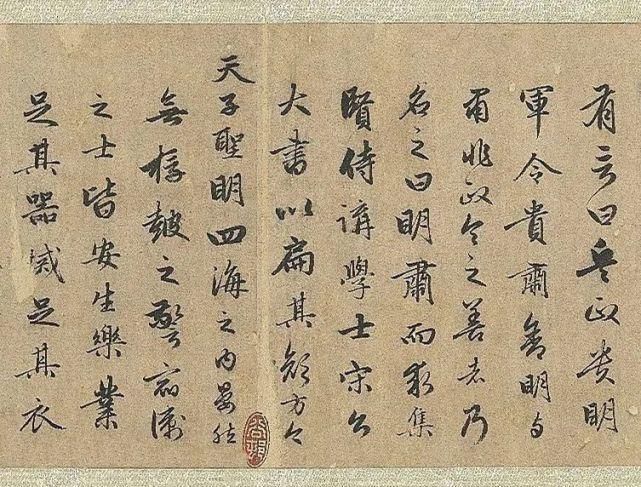 有言曰兵政貴明
軍令貴肅舍明与
肅非政令之善者乃
名之曰明肅而求集
賢侍講學士宋公
大書以扁其顏方今
天子聖明四海之内晏然
無桴鼓之警宿衛
之士皆安生樂業
足其器械足其衣